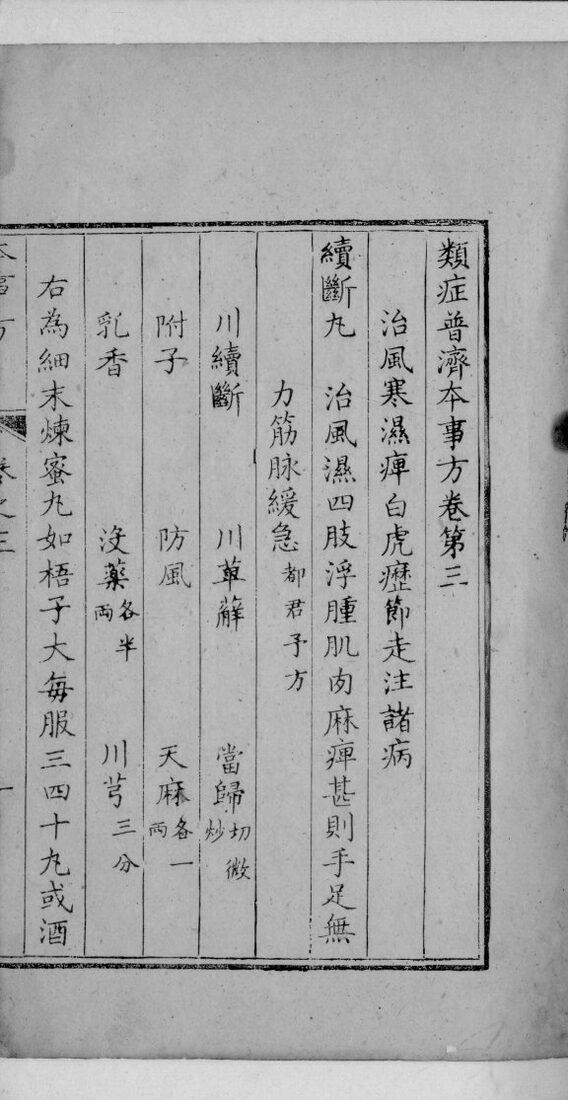 類症普濟本事方卷第三
治風寒濕痺白虎癧節走注諸病
續斷丸 治風濕四肢浮腫肌肉麻痺甚則手足無
力筋脉緩急都君予方
川續斷 川萆薢 當歸切微炒
附子 防風 天麻各一兩
乳香 沒藥各半兩 川芎三分
右為細末煉蜜丸如梧子大每服三四十丸或酒